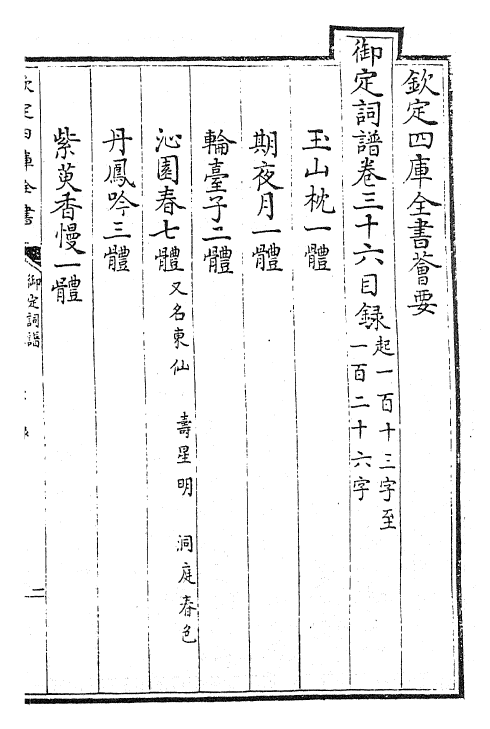 欽定四庫全書薈要
御定詞譜卷三十六目録起一百十三字至一百二十六字
玉山枕一體
期夜月一體
輪臺子二體
沁園春七體 又名東仙 壽星明 洞庭春色
丹鳳吟三體
紫萸香慢一體
欽定四庫全書
御定詞譜
二